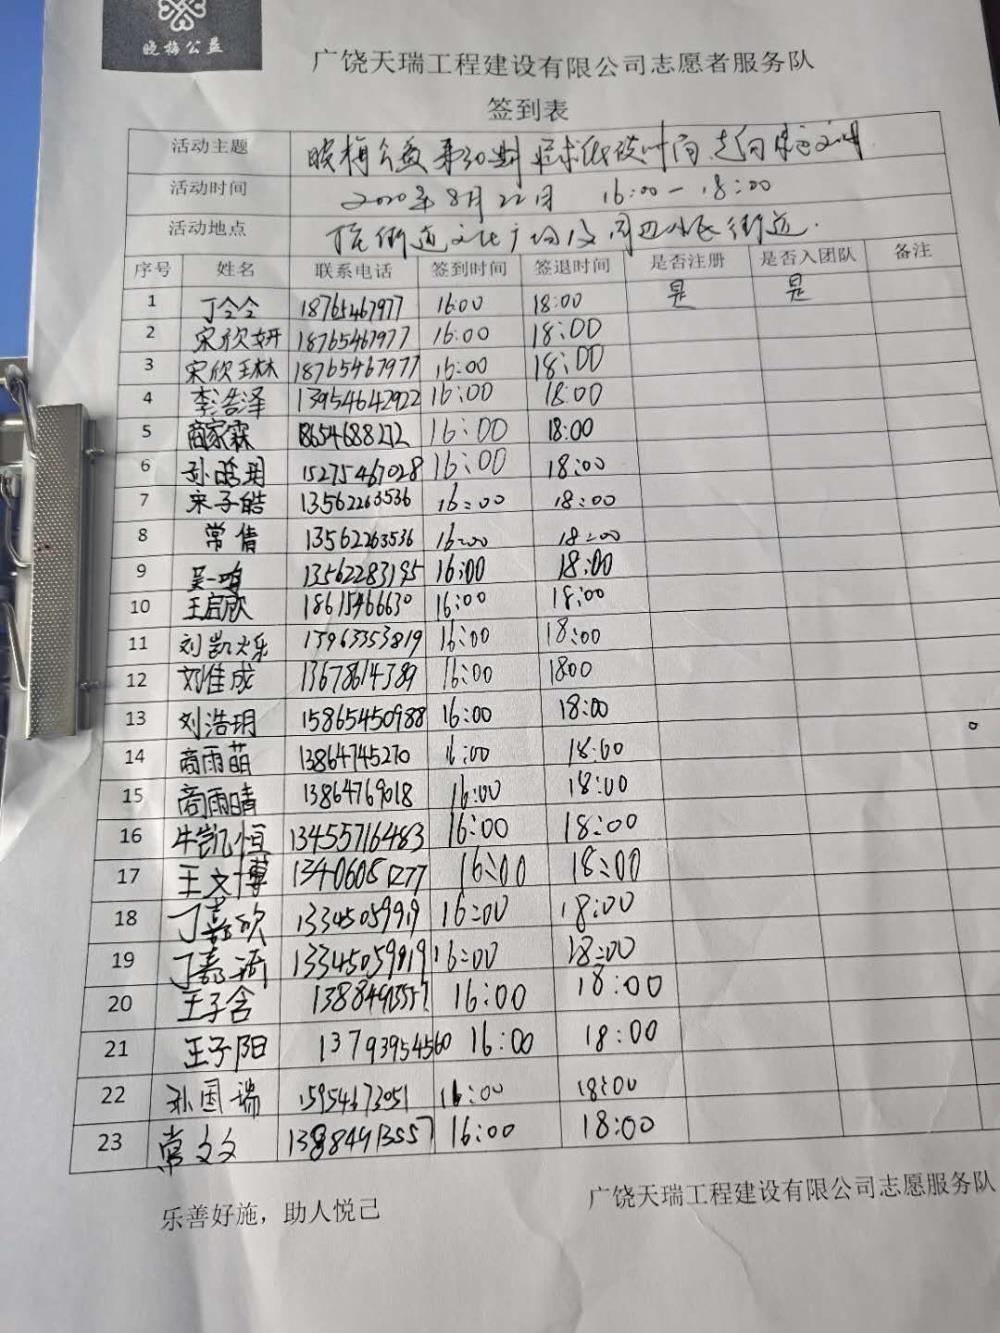 晓梅公益
广饶天瑞工程建设有限公司志愿者服务队
签到表
活动主题 晓梅公益第30期
活动时间 2020年8月22日 16:00-18:00
活动地点 街道文化广场及周边 街道.
序号 姓名 联系电话 签到时间 签退时间 是否注册 是否入团队 备注
1 丁令令 18765467977 16:00 18:00 是 是
2 宋欣妍 18765467977 16:00 18:00
3 宋欣玨林 18765467977 16:00 18:00
4 李浩泽 13954642922 16:00 18:00
5 商家霖 18654688272 16:00 18:00
6 孙皓玥 15275467028 16:00 18:00
7 宋子皓 13562263536 16:00 18:00
8 常倩 13562263536 16:00 18:00
9 吴一鸣 13562283195 16:00 18:00
10 王启欣 18615466630 16:00 18:00
11 刘凯烁 13963353819 16:00 18:00
12 刘佳成 13678614389 16:00 1800
13 刘浩玥 15865450988 16:00 18:00
14 商雨萌 13864745270 16:00 18:00
15 商雨晴 13864769018 16:00 18:00
16 牛凯恒 13455716483 16:00 18:00
17 王文博 13406051277 16:00 18:00
18 丁嘉欣 13345059919 16:00 18:00
19 丁嘉 13345059919 16:00 18:00
20 王子含 13884913557 16:00 18:00
21 王子阳 13793954560 16:00 18:00
22 孙国瑞 15954673051 16:00 18:00
23 常文文 13884913557 16:00 18:00
乐善好施，助人悦己
广饶天瑞工程建设有限公司志愿服务队